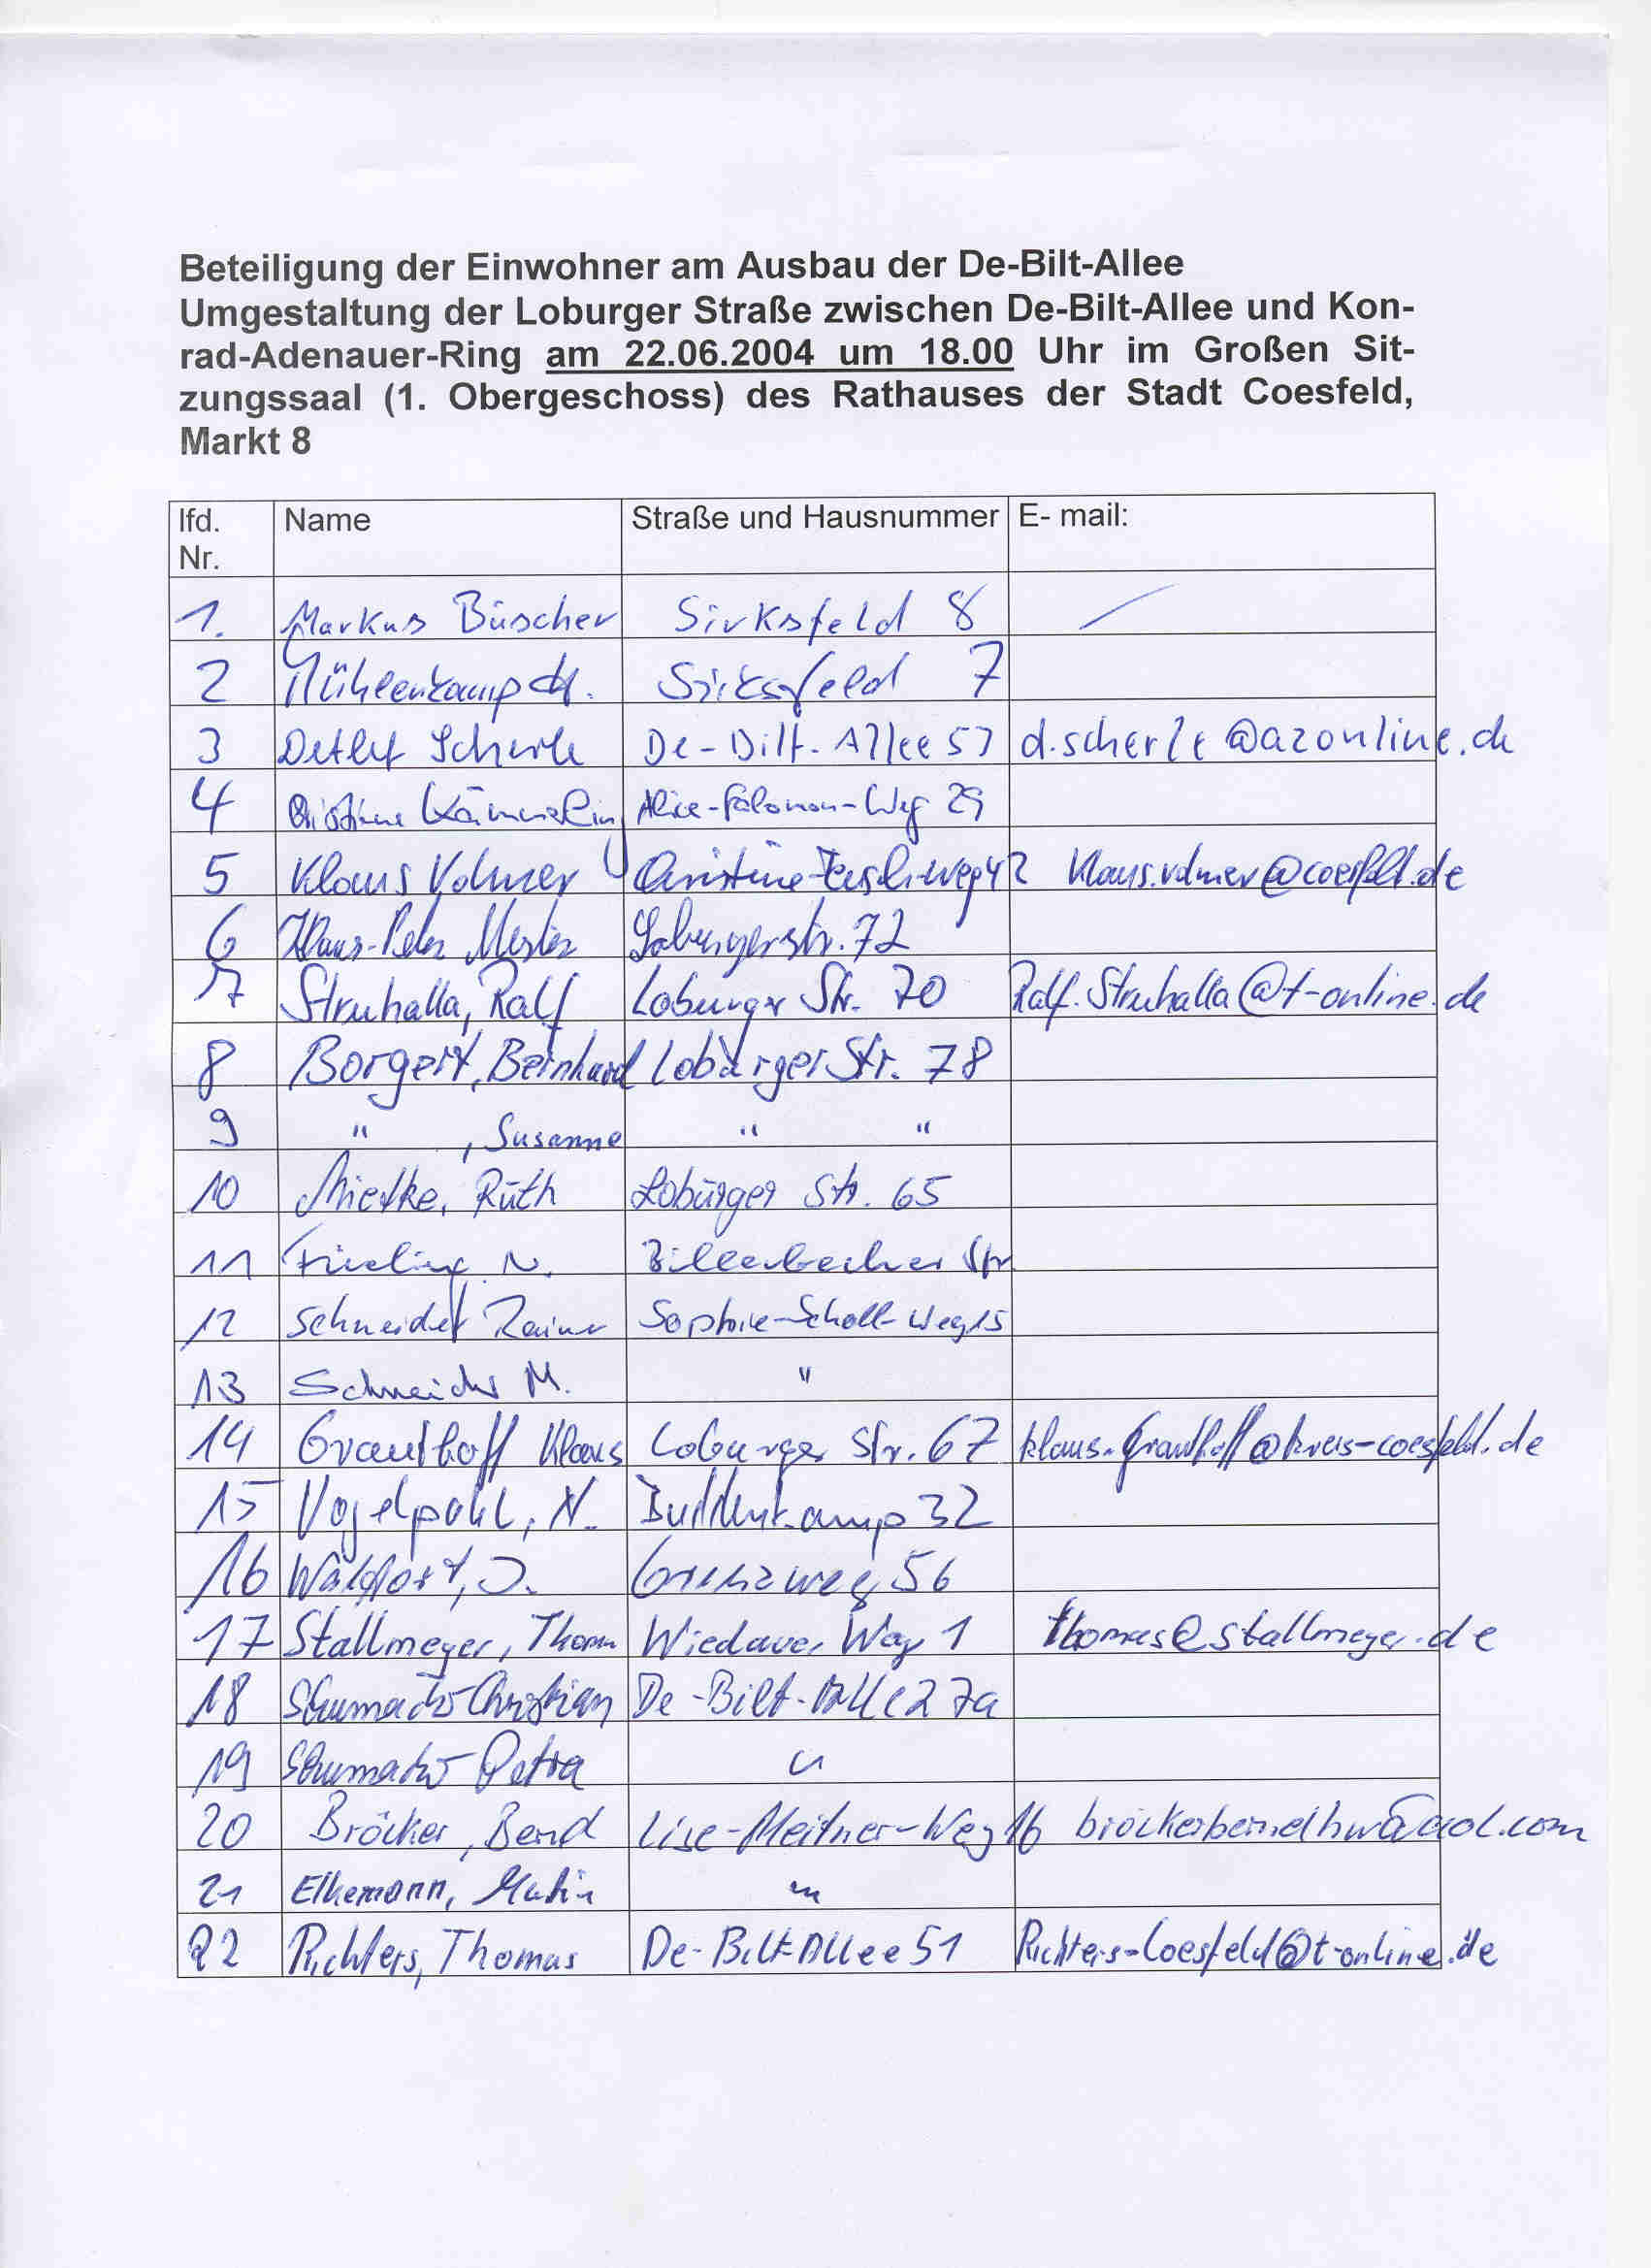 Beteiligung der Einwohner am Ausbau der De-Bilt-Allee
Umgestaltung der Loburger Straße zwischen De-Bilt-Allee und Kon-
rad-Adenauer-Ring am 22.06.2004 um 18.00 Uhr im Großen Sit-
zungssaal (1. Obergeschoss) des Rathauses der Stadt Coesfeld,
Markt 8
lfd. Nr. Name Straße und Hausnummer E- mail:
1. Markus Büscher Sirksfeld 8 /
2 Mühlenkamp H. Sirksfeld 7
3 Detlef Scherle De-Bilt-Allee 57 d.scherle@azonline.de
4 Christine Kämmerling Alice-Salomon-Weg 29
5 Klaus Volmer Christine-Teusch-Weg 42 klaus.volmer@coesfeld.de
6 Klaus-Peter Mester Loburgerstr. 72
7 Struhalla, Ralf Loburger Str. 70 Ralf.Struhalla@t-online.de
8 Borgert, Bernhard Loburger Str. 78
9 " , Susanne " "
10 Mietke, Ruth Loburger Str. 65
11 N. Billerbecker Str
12 Schneider Rainer Sophie-Scholl-Weg 15
13 Schneider M. "
14 Granthoff Klaus Loburger Str. 67 klaus.granthoff@kreis-coesfeld.de
15 Vogelpohl, N. Buddenkamp 32
16 Waldfort, J. Grenzweg 56
17 Stallmeyer, Thom Wiedauer Weg 1 thomas@stallmeyer.de
18 Schumacher Christian De-Bilt-Allee 27a
19 Schumacher Petra "
20 Bröcker, Bernd Lise-Meitner-Weg 16 bröckerberndhw@aol.com
21 Elkemann, Martin "
22 Richters, Thomas De-Bilt-Allee 51 Richters-Coesfeld@t-online.de